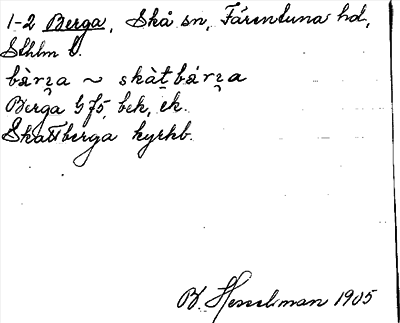 1-2 Berga, Skå sn, Färentuna hd,
Sthlm l.
bær̨a ~ skàt bær̨a
Berga GJ5, bek, ek.
Skattberga kyrkb.
B. Hesselman 1905